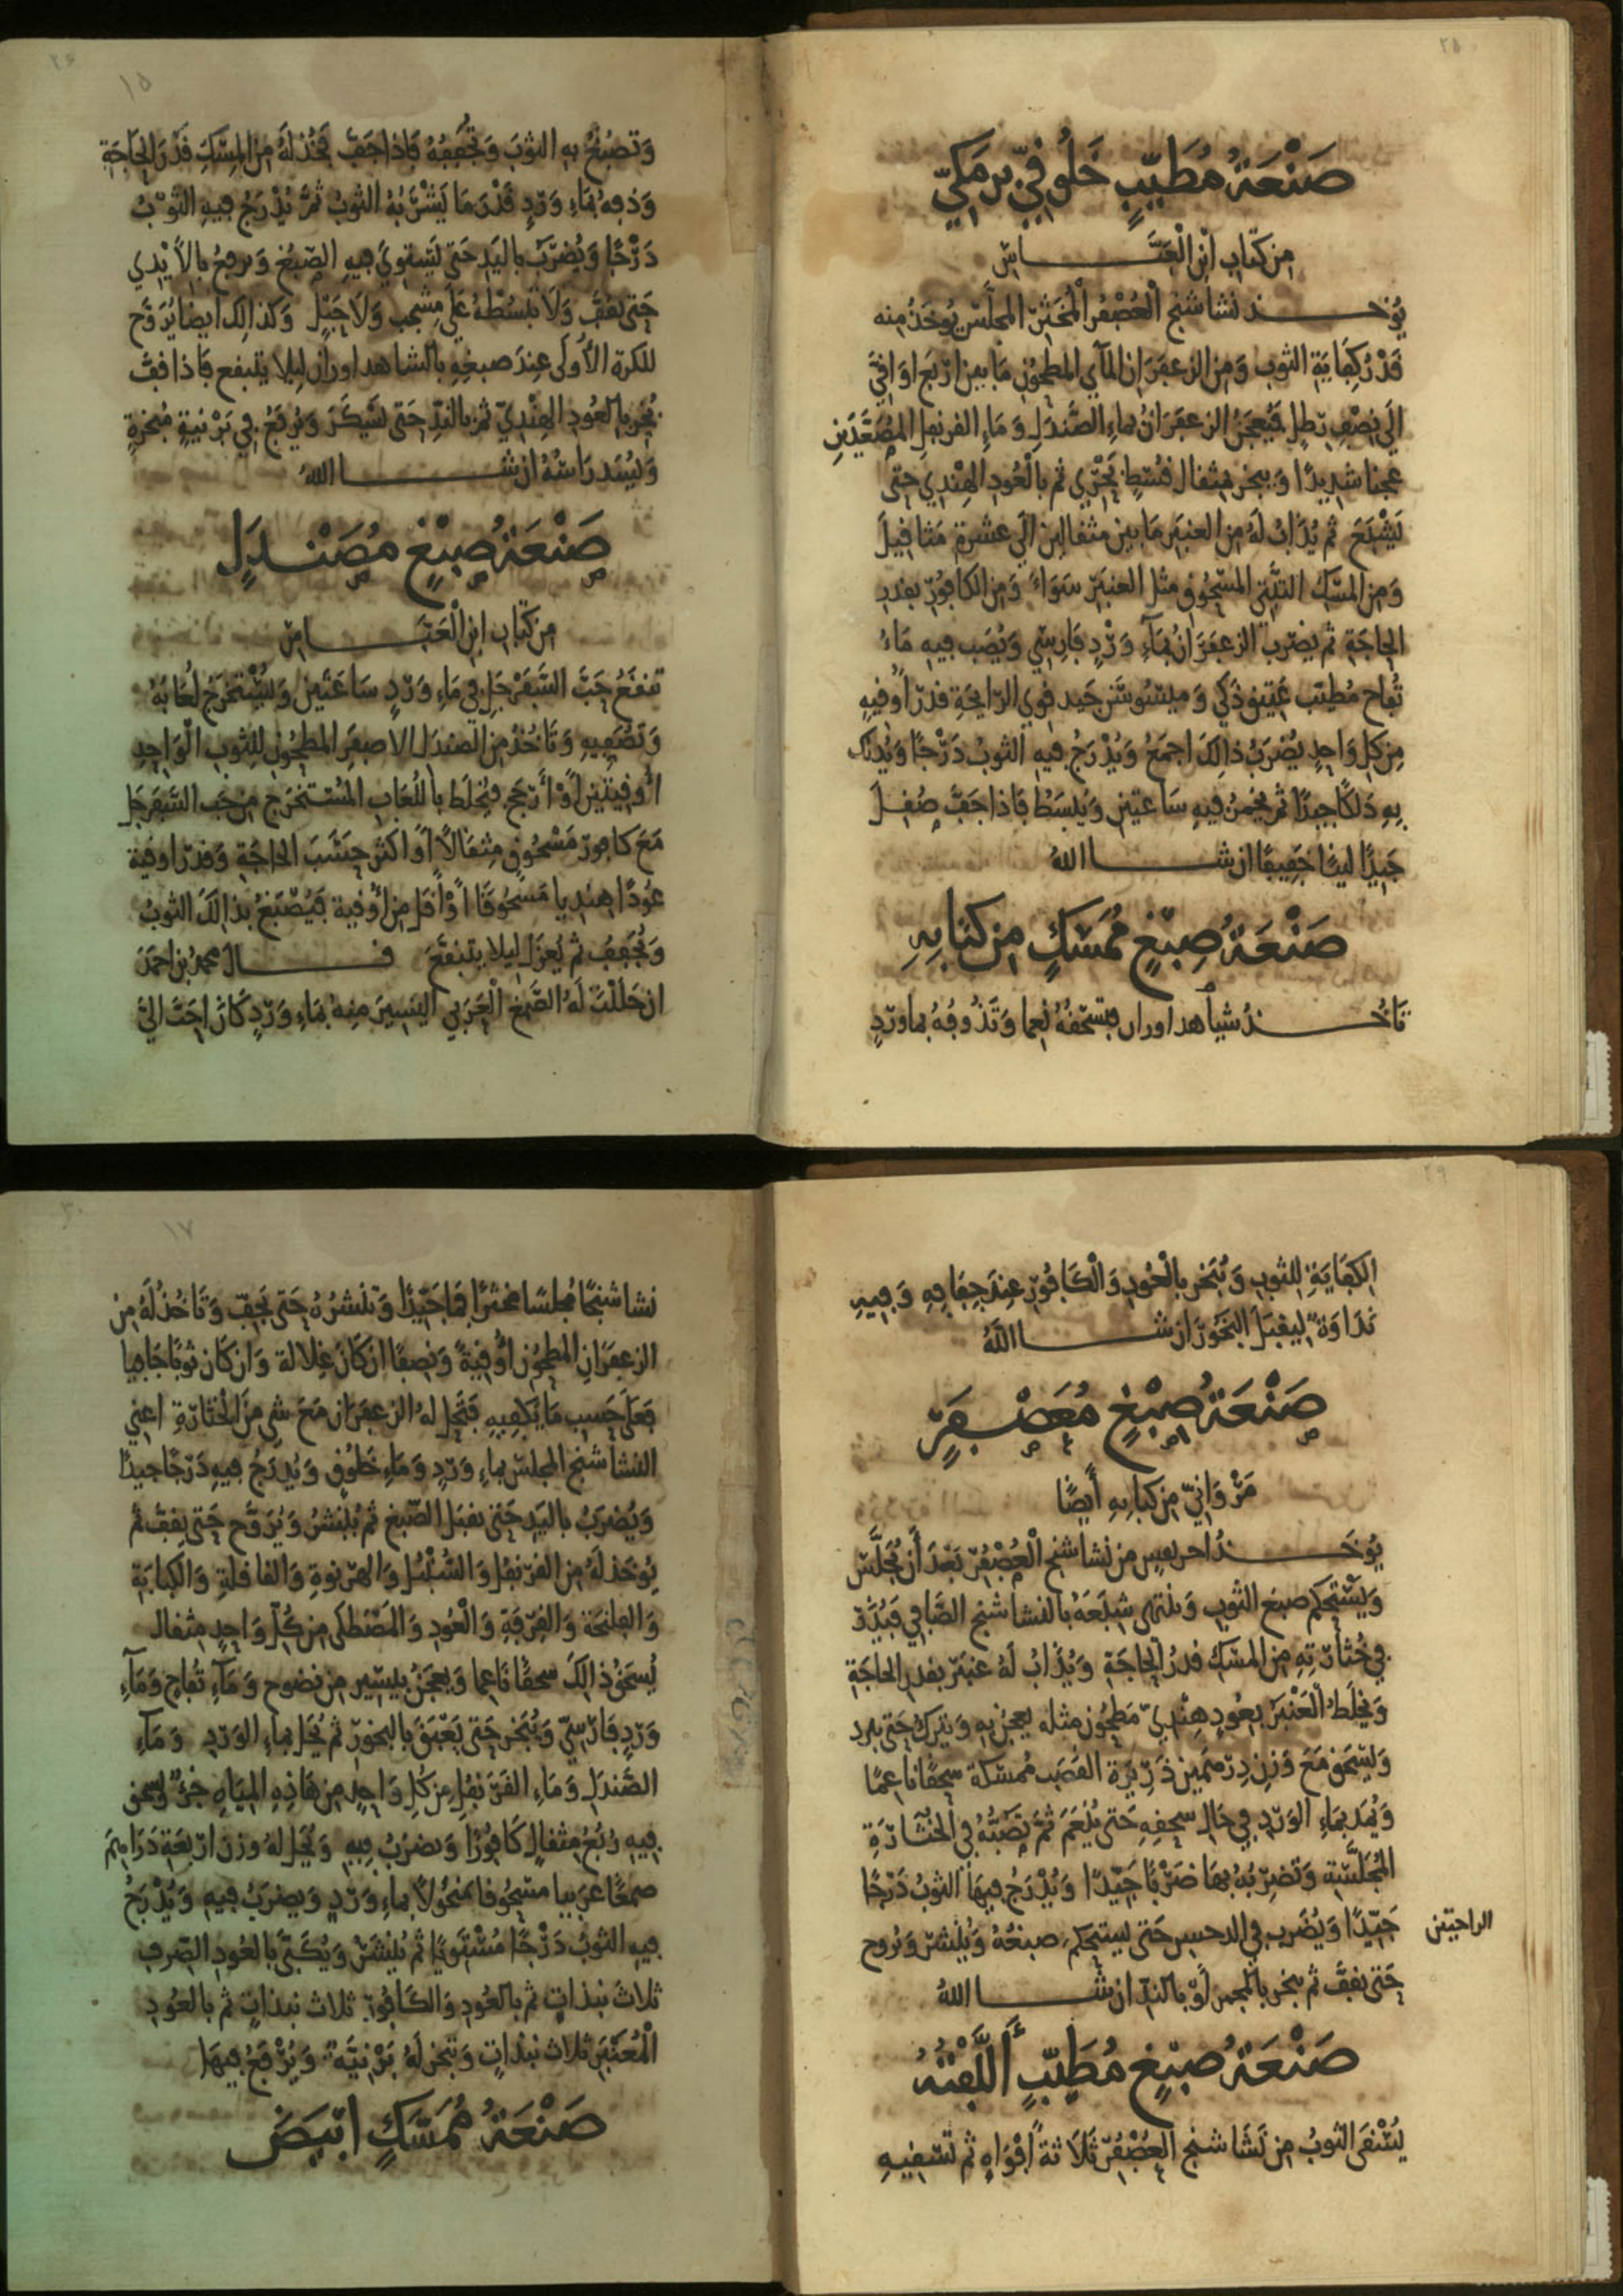 ٢٥
صَنْعَةُ مُطَيَّبٍ خَلُوقِيّ برمَكيّ
من كتاب ابن العَبَّاس
يُوخذ نشاشنج العُصْفُر المُخَثَّر المجلّس يُوخَذُ منه
قَدْرُ كِفَاية الثوب وَمن الزعفَرَان المآي المطحُون مَا بين اربَع اوَاقيَ
الَى نصْف رَطل فيُعجَن الزعفَرَانُ بماء الصَّندَل وَمَاءِ القرنفل المصَعَّدَين
عجنا شديدًا وَيبخر مثقال قسط بَحري ثم بالعُودِ الهِنْدي حتى
يَشْبَعَ ثم يُذَابُ لَهُ من العنبَر مَا بين مثقالين الَى عشرة مَثاقيلَ
وَمن المسْك التبّتي المسْحُوق مثل العنبَر سَوَاءً وَمن الكافُور بقدر
الحاجَة ثم يضرب الزعفَرَانُ بمَآءِ وَرْدٍ فَارسي وَيُصَب فيه مَاءُ
تُفاح مُطيّب عَتيق ذَكي وَميسُوسَن جَيد قوي الرايحَةِ قدرَ اوقيه
مِن كل وَاحِدٍ يُضرَبُ ذالِكَ اجمَعُ وَيُدْرَجُ فيه الثوبُ دَرْجًا وَيُدلك
بِهِ دَلكًا جيدًا ثم يُخمّر فيه سَاعتين وَيُبسَطُ فَاذا جَفَّ صُقلَ
جَيدًا لينًا خَفيفًا ان شـا اللهُ
صَنْعَةُ صِبْغٍ مُمَسَّكٍ من كتابه
تَاخُذُ شيأهداوران فتسْحَقهُ نعما وَتَذُوفهُ بماورد
٢٦
١٥
وَتصبُغُ به الثوبَ وَتُجَففُهُ فَاذا جَفّ فخُذ لَهُ من المسْك قَدْرَ الحاجَةِ
وَذفهُ بمَاءِ وَردٍ قَدْرَ مَا يَشْرَبُهُ الثوبُ ثمَّ يُدْرَجُ فيهِ الثَّوْبُ
دَرْجًا وَيُضرَب باليَدِ حَتى يَستوي فيهِ الصّبْغُ وَيرفعُ بالأَيْدي
حَتى يَقبَّ وَلَا تبسُطهُ عَلَى مشجب وَلَا حَبْل وَكذالك ايضا يُرَوَّح
للكرة الأولَى عندَ صبغه بالشاهداوران ليلا يتبقع فاذا قبَّ
بُخّر بالعُود الهِنْدِيّ ثم بالندّ حَتى يَسْكَرَ وَيُرفَعُ في بَرْنيةٍ مبخرةٍ
وَليُشد رَاسُهُ ان شـا اللهُ
صَنْعَةُ صِبْغٍ مُصَنْدَلٍ
من كتاب ابن العَبَّاس
تنقَعُ حَبَّ السَّفَرْجَل في مَاءِ وَرْدٍ سَاعَتَين وَيُسْتخرَجُ لُعَابُهُ
وَتصَفيهِ وَتَاخُذُ من الصَندَل الاصفَر المطحُون للثوب الوَاحِدِ
أوقيتَين أَوْ أرجح فتخلَط باللُعَابِ المُستخرَج من حَب السَفَرجَل
مَعَ كافور مَسْحُوقٍ مثقالاً أوْ اكثر حَسَبَ الحاجَةِ وَقدر اوقية
عُودًا هنديا مَسْحُوقًا أوْ اقل من أوُقية فيُصْبَغُ بذالكَ الثوبُ
وَيُجَففُ ثم يُعزَل ليلا يتبقَّعَ قـال محمد بن احمَدَ
ان حَللتَ لَهُ الصَّمغ العَرَبي اليَسيرَ منه بمَاءِ وَرَدٍ كانَ احَبَّ اليَّ
٢٩
الكفَايَة للثوبِ وَتبَخر بالْعُودِ وَالْكَافُور عِندَ جفَافهِ وَفيهِ
نَدَاوَة ليَقبَل البَخُورَ ان شـا اللهُ
صَنْعَةُ صِبْغٍ مُعَصْفَرٍ
مَرْوَانيّ من كتابه أيضًا
يُوخَذُ من نشاشنج الْعُصْفُر بَعْدَ أن يُجَلَّس
وَيَسْتحكم صبغ الثوب وَينتهي شبَعَهُ بالنشاشنج الصَّافي فيُذَر
في خُثَارَتِهِ من المسْك قدرُ الحَاجَة وَيُذَابُ لَهُ عَنبَر بقدر الحاجَةِ
وَيُخلَط العَنْبَرُ بعُودٍ هِنْديّ مَطحُون مثله يعجن به وَيترك حَتى يبرد
وَيُسْحَق مَعَ وَزن درْهَمين ذَريرَة القَصَب مُمسّكة سحقًا نَاعمًا
وَيُمَد بمَاء الوَرْدِ في حَال سحقِهِ حَتى يُنْعَمَ ثم تَصُبُّهُ في الخُثَارَةِ
المُجَلَّسة وَتضربُهُ بهَا ضَرْبًا جَيّدًا وَيُدْرَجُ فيهَا الثوبُ دَرْجًا
جَيّدًا وَيُضَرب في حَتى يستحكم صبغُهُ وَيُنشر وَيُروح
الراحتين
حَتى يقبَّ ثم يبخر بالمجمر أَوْ بالندّ ان شـا اللهُ
صَنْعَةُ صِبْغٍ مُطَيَّبٍ أَلَّفْتُهُ
يُسْقَى الثوبُ من نَشَاشنج العُصْفُر ثَلَاثةَ افوَاهٍ ثم تَسْقيهِ
٣٠
١٧
نشاشنجًا مُجلسًا مخثرًا قَمًا جَيّدًا وَتنشرُهُ حَتى يَجفّ وَتَاخُذُ لَهُ من
الزعفرَان المطحُون أوقيةً وَنصفًا ان كَانَ غِلَالة وَان كان ثوبًا جَافيا
فعَلَى حَسب مَا يَكفيهِ فتحل لَهُ الزعفرَان مَعَ شي من الخثارة اعني
النشاشنج المجلس بماءِ وَردٍ وَمَاءِ خَلُوقٍ وَيُدرَجُ فيه دَرْجًا جيدًا
وَيُضرَبُ باليَدِ حَتى يقبَل الصّبغ ثم يُنْشرُ وَيُرَوَّح حَتى يقبَّ ثم
يُوخَذ لَهُ من القرنفل وَالسُّنْبُل وَالهرنوة وَالقاقلة وَالكبابَة
وَالفلنجَة وَالقرفَةِ وَالْعُودِ وَالمَصْطكى من كُلّ وَاحدٍ مثقال
يُسحَقُ ذالكَ سحقًا نَاعما وَيعجَنُ بيَسير من نضوح وَمَآءِ تُفاح وَمَآءِ
وَردٍ فَارسيّ وَيُبَخر حَتى يَعْبَقَ بالبخور ثم يُحَل بماءِ الوَرْدِ وَمَاءِ
الصَّندَل وَمَاءِ القَرنفُل من كل وَاحدٍ من هَاذِهِ الميَاهِ جُزءٌ وَيُسحق
فيه رُبْعُ مثقالٍ كَافُورًا وَيضرَبُ فيهِ وَيُحَل لَهُ وزن اربَعَة دَرَاهِمَ
صمغًا عربيا مسحُوقا منخُولًا بماءِ وَرْدٍ وَيضرَبُ فيهِ وَيُدْرَجُ
فيهِ الثوبُ دَرْجًا مُسْتَويًا ثم يُنشَر وَيُكَبَّى بالعُودِ الصّرفِ
ثلاث نبذاتٍ ثم بالعُودِ وَالكَافُور ثلاث نبذاتٍ ثم بالعُودِ
الْمُعَنْبَر ثلاث نبذاتٍ وَتبخر لَهُ بَرْنيَّة وَيُرْفَعُ فيهَا
صَنْعَةُ مُمَسَّكٍ ابيَضَ